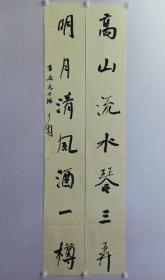 高山流水琴三弄
明月清风酒一樽